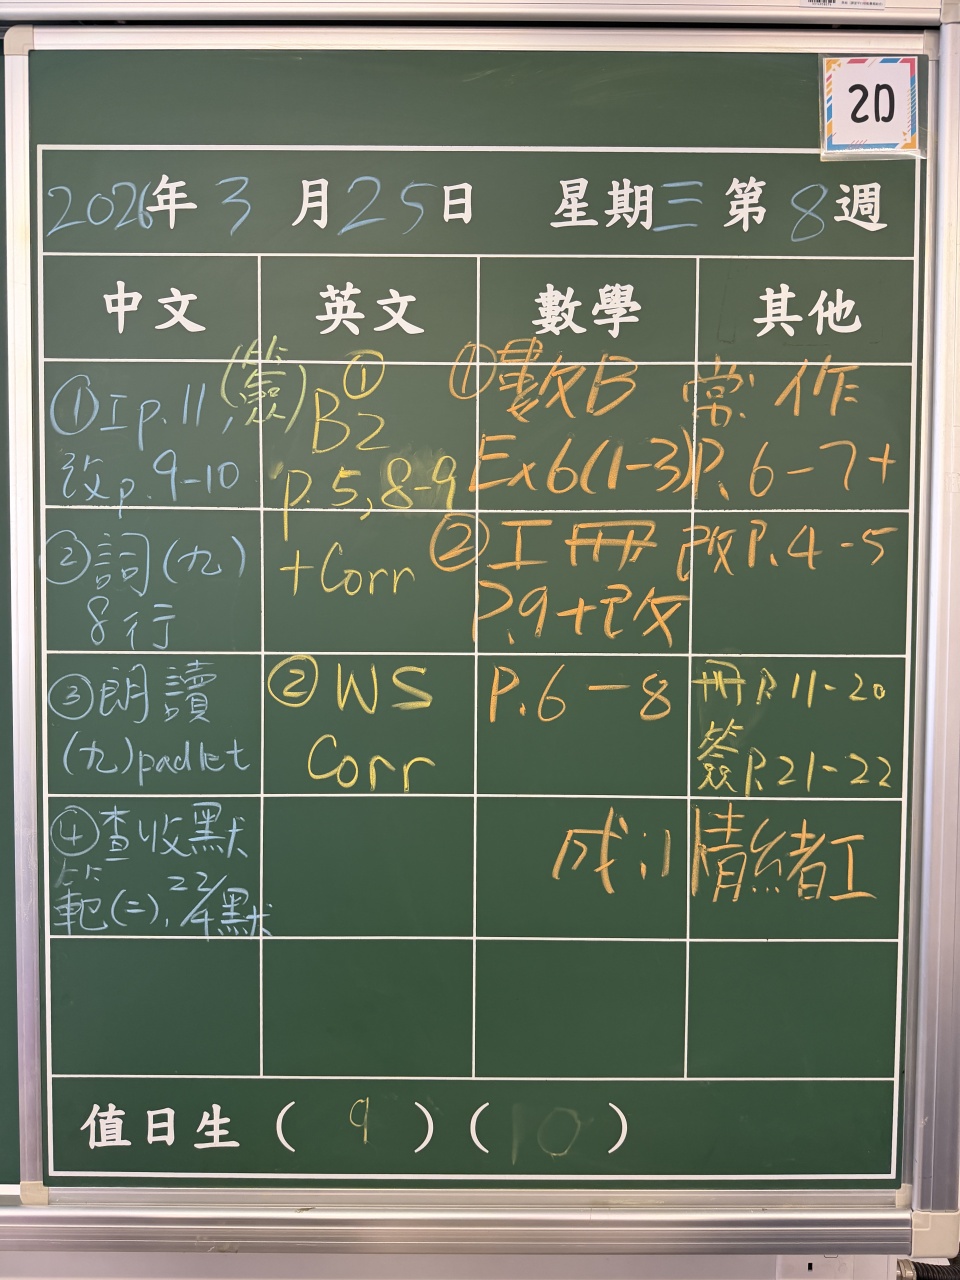 2D
2026年3月25日 星期三 第8週
中文 英文 數學 其他
①工p.11,
改p.9-10
②詞(九)
8行
③朗讀
(九)padlet
④查收默
範(二),22/4默
(簽)
①
B2
p.5,8-9
+Corr
②WS
Corr
①數B
Ex6(1-3)
②工冊
P.9+改
P.6-8
常作
P.6-7+
改P.4-5
冊P.11-20
簽P.21-22
成:情緒工
值日生(9)(10)